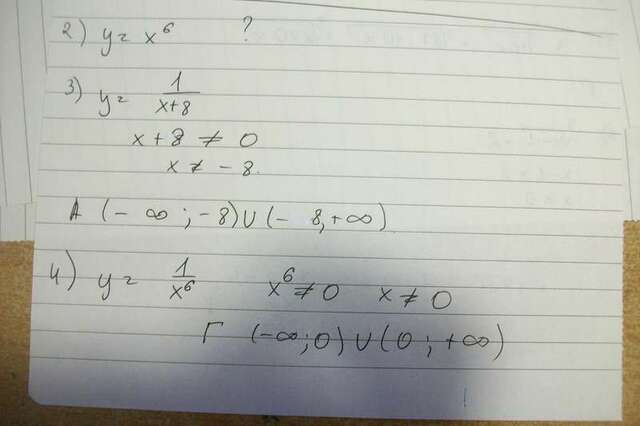 2) y = x⁶ ?
3) y = 1/(x+8)
x + 8 ≠ 0
x ≠ - 8.
A (- ∞ ; - 8) ∪ (- 8, +∞)
4) y = 1/x⁶ x⁶ ≠ 0 x ≠ 0
Г (-∞; 0) ∪ (0 ; +∞)